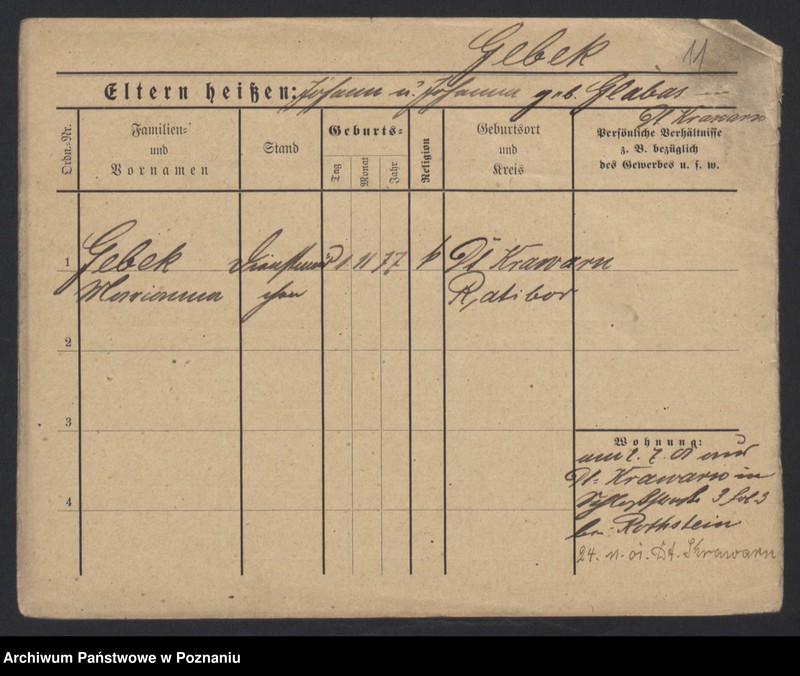 Gebek 11
Eltern heißen: Johann u. Johanna geb. Glabas
Dt Krawarn
Ordn.-Nr.
Familien-
und
Vornamen
Stand
Geburts-
Tag
Monat
Jahr
Religion
Geburtsort
und
Kreis
Persönliche Verhältnisse
z. B. bezüglich
des Gewerbes u. s. w.
1 Gebek Dienstmäd 1 11 77 k Dt Krawarn
Marianna chen Ratibor
2
3
4
Wohnung:
am 2. 7. 01 aus
Dt. Krawarn in
3
bei Rothstein
24. 11. 01. Dt. Krawarn
Archiwum Państwowe w Poznaniu